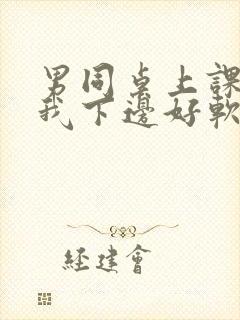 男同桌上課
我下邊好軟
經建會